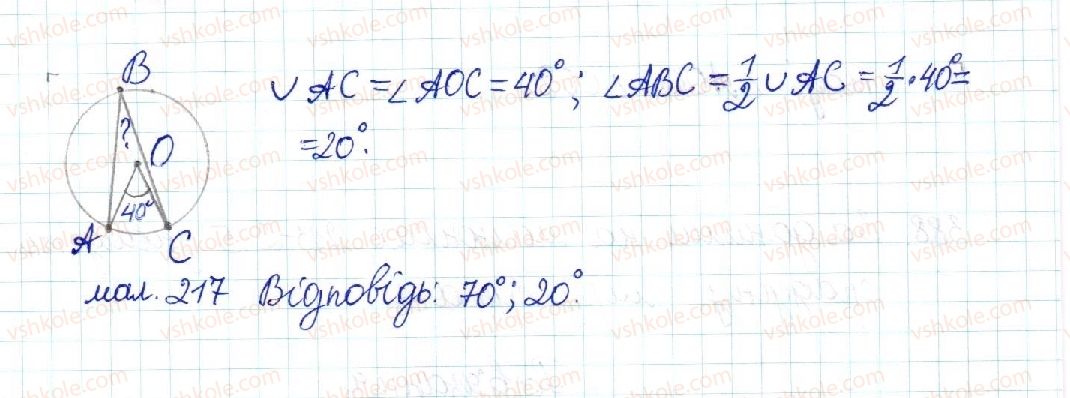 B
∪ AC = ∠AOC = 40°; ∠ABC = 1/2 ∪ AC = 1/2 · 40° =
= 20°.
?
O
40°
A
C
мал. 217 Відповідь: 70°; 20°.
vshkole.com